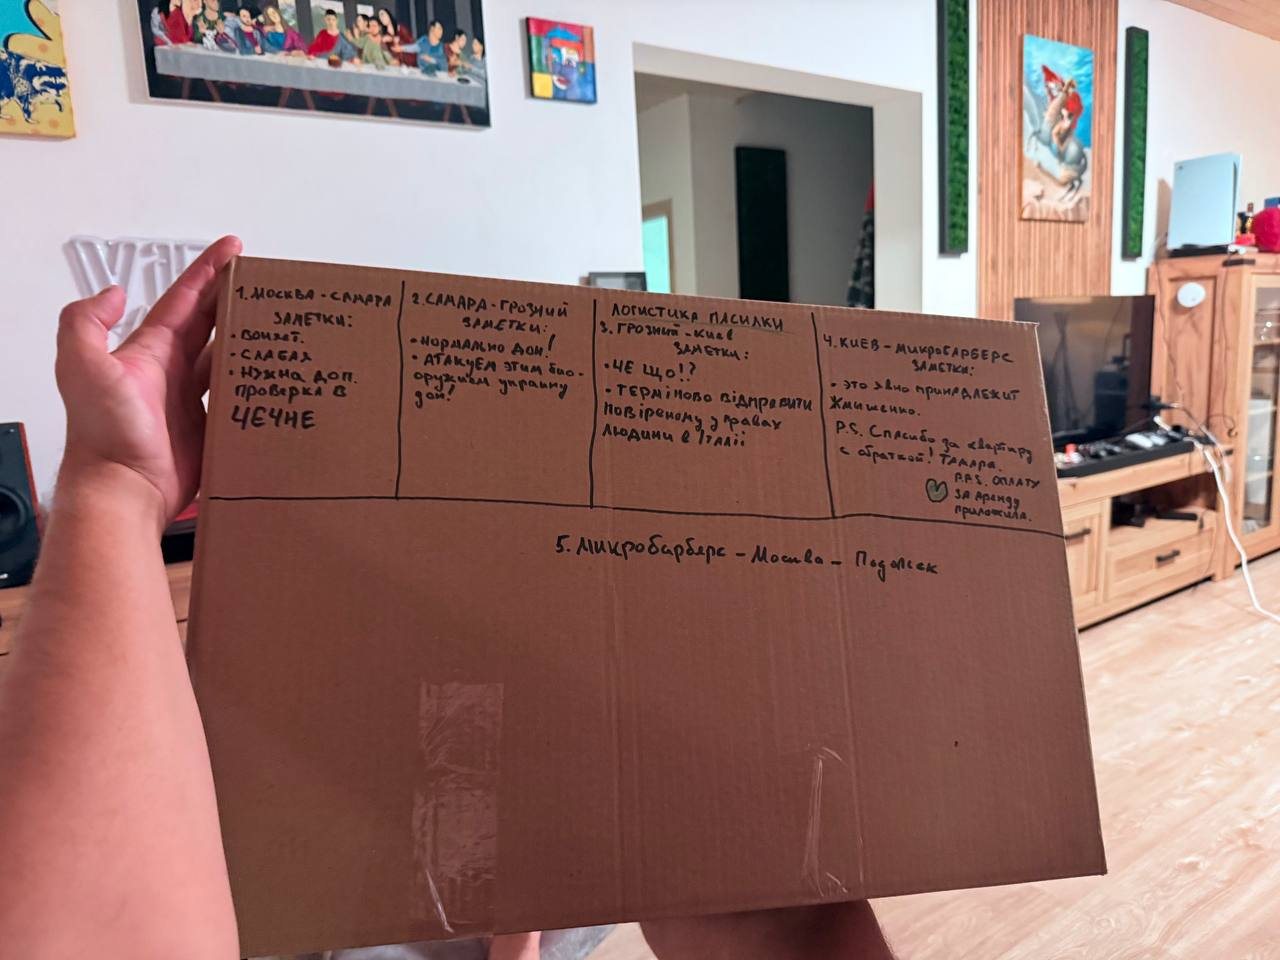 ЛОГИСТИКА ПАСИЛКИ
1. МОСКВА - САМАРА
ЗАМЕТКИ:
• Воняет.
• СЛАБАЯ
• НУЖНА ДОП.
ПРОВЕРКА В
ЧЕЧНЕ
2. САМАРА - ГРОЗНИЙ
ЗАМЕТКИ:
• НОРМАЛЬНО ДОН!
• АТАКУЕМ ЭТИМ БИО-
оружием украину
дон!
3. ГРОЗНИЙ - Киев
ЗАМЕТКИ:
• ЧЕ ЩО!?
• ТЕРМІНОВО ВІДПРАВИТИ
повіреному у правах
людини в Італії
4. КИЕВ - МИКРОБАРБЕРС
ЗАМЕТКИ:
• это явно принадлежит
Жмишенко.
P.S. Спасибо за квартиру
с обраткой! ТАМАРА.
P.P.S. ОПЛАТУ
ЗА Аренду
приложила.
5. Микробарберс - Москва - Подольск